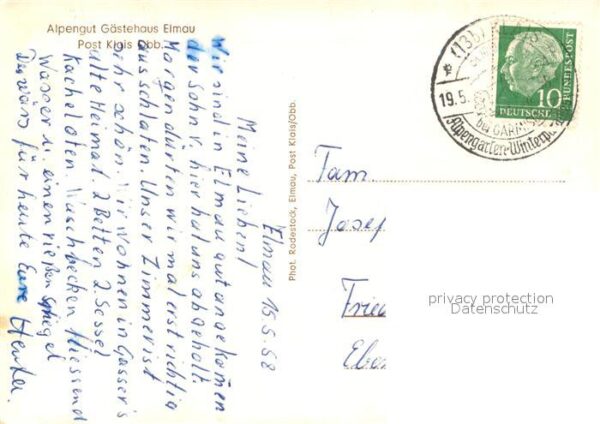 Alpengut Gästehaus Elmau
Post Klais Obb.
Elmau 15.5.58
Meine Lieben!
Wir sind in Elmau gut angekommen
der Sohn v. hier hat uns abgeholt.
Morgen dürfen wir mal erst richtig
ausschlafen. Unser Zimmer ist
sehr schön. Wir wohnen in Gasser's
alte Heimat 2 Betten 2 Sessel
Kachelofen. Waschbecken fliessend
Wasser u. einen rießen Spiegel
Das wärs für heute Eure
Phot. Rodestock, Elmau, Post Klais/Obb.
(13b) KLAIS
19.5.
bei GARMISCH
Alpengarten-Winterp
10
DEUTSCHE BUNDESPOST
Fam
Josef
Fried
Eber
privacy protection
Datenschutz